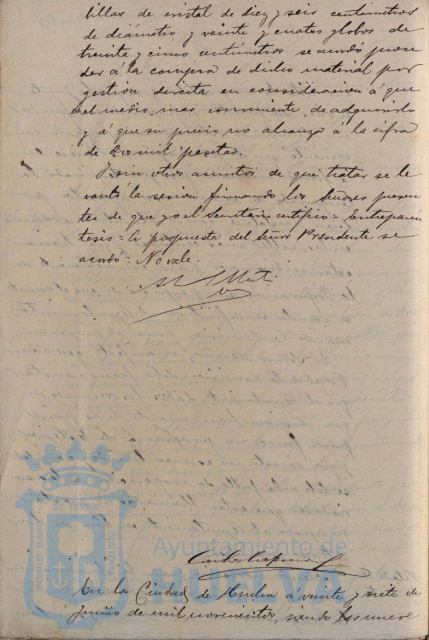 billas de cristal de diez y seis centimetros
de diámetro y veinte y cuatro globos de
treinta y cinco centímetros se acordó proce
der á la compra de dicho material por
gestión directa en consideración á que
el medio mas conveniente de adquirirlo
y á que su precio no alcanza á la cifra
de dos mil pesetas.
Y sin otros asuntos de que tratar se le
vantó la sesión firmando los Señores presen
tes de que yo el Secretario certifico = Entreparen
tesis = A propuesta del Señor Presidente se
acordó = No vale.
Ayuntamiento de
HUELVA
En la Ciudad de Huelva á veinte y siete de
Junio de mil novecientos, siendo las nueve